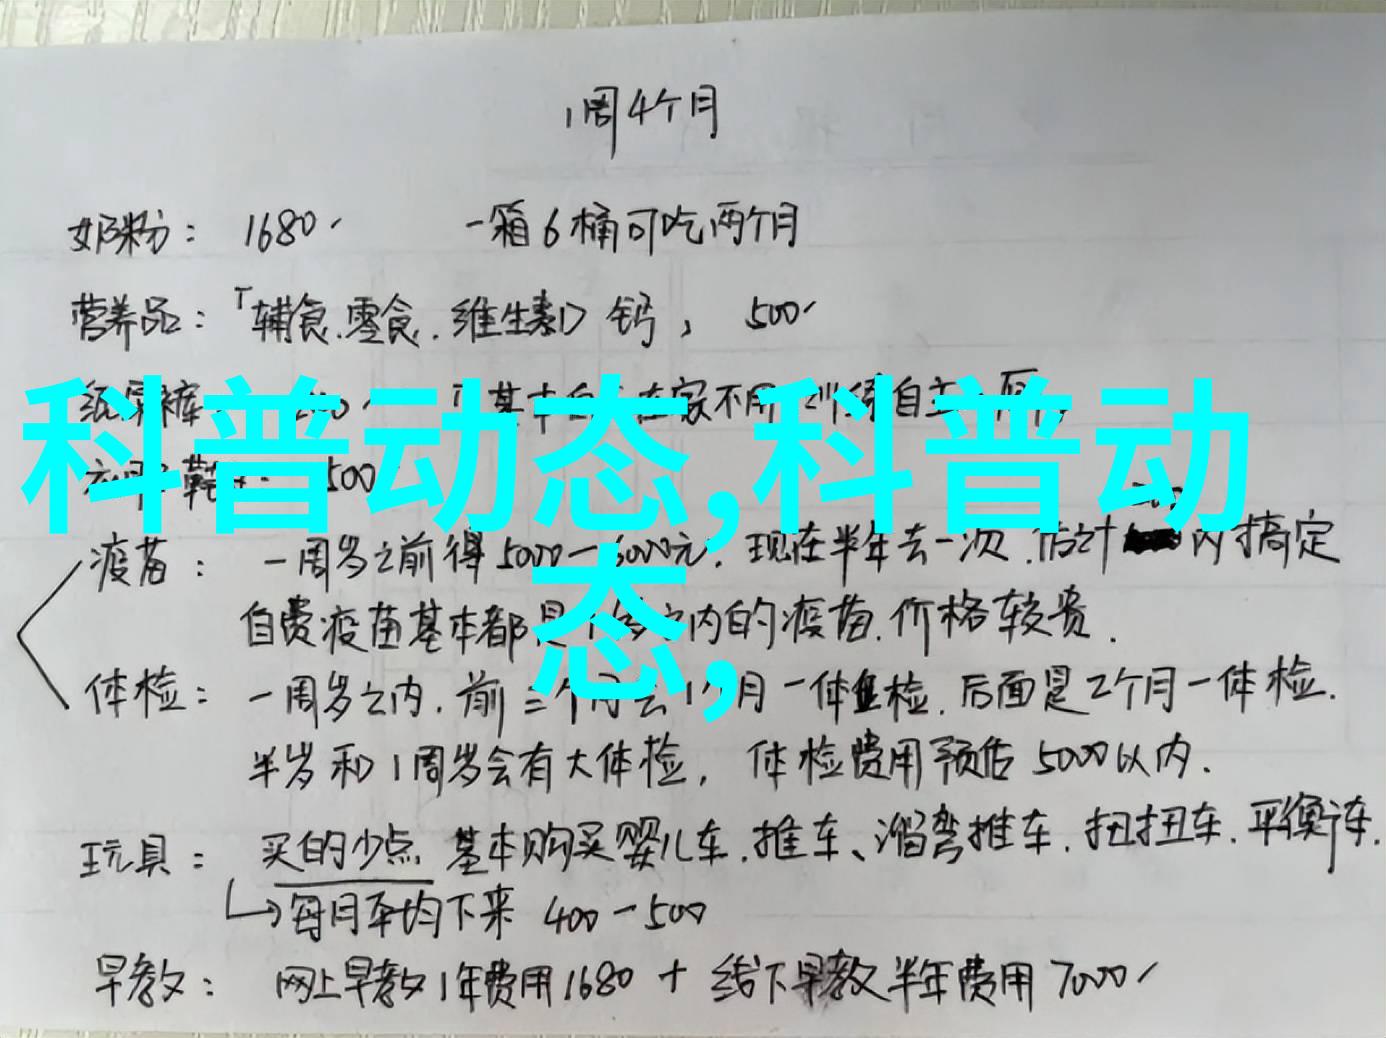 1周4个月
奶粉： 1680 一箱6桶可吃两个月
营养品：「辅食.零食.维生素D 钙， 500
纸尿裤 基本白 在家不用 自主
科普动态,科普动
500
疫苗： 一周岁之前得5000一6000元．现在半年去一次．估计 内搞定
态,
自费疫苗基本都是1岁之内的疫苗．价格较贵．
体检： 一周岁之内．前三个月去1个月一体检．后面是2个月一体检．
半岁和1周岁会有大体检， 体检费用预估5000以内．
玩具： 买的少点 基本购买婴儿车．推车、溜弯推车．扭扭车．平衡车．
↳每月平均下来 400一500
早教： 网上早教1年费用1680 + 线下早教半年费用7000